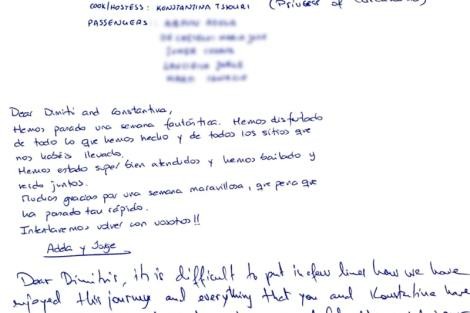 COOK/HOSTESS : KONSTANTINA TSIOURI (Princess of
PASSENGERS
Dear Dimitri and Constantina,
Hemos pasado una semana fantástica. Hemos disfrutado
de todo lo que hemos hecho y de todos los sitios que
nos habéis llevado.
Hemos estado super bien atendidos y hemos bailado y
reído juntos.
Muchas gracias por una semana maravillosa, que pena que
ha pasado tan rápido.
Intentaremos volver con vosotros!!
Adda y Jorge
Dear Dimitris, it is difficult to put in few lines how we have
enjoyed this journey and everything that you and Konstantina have